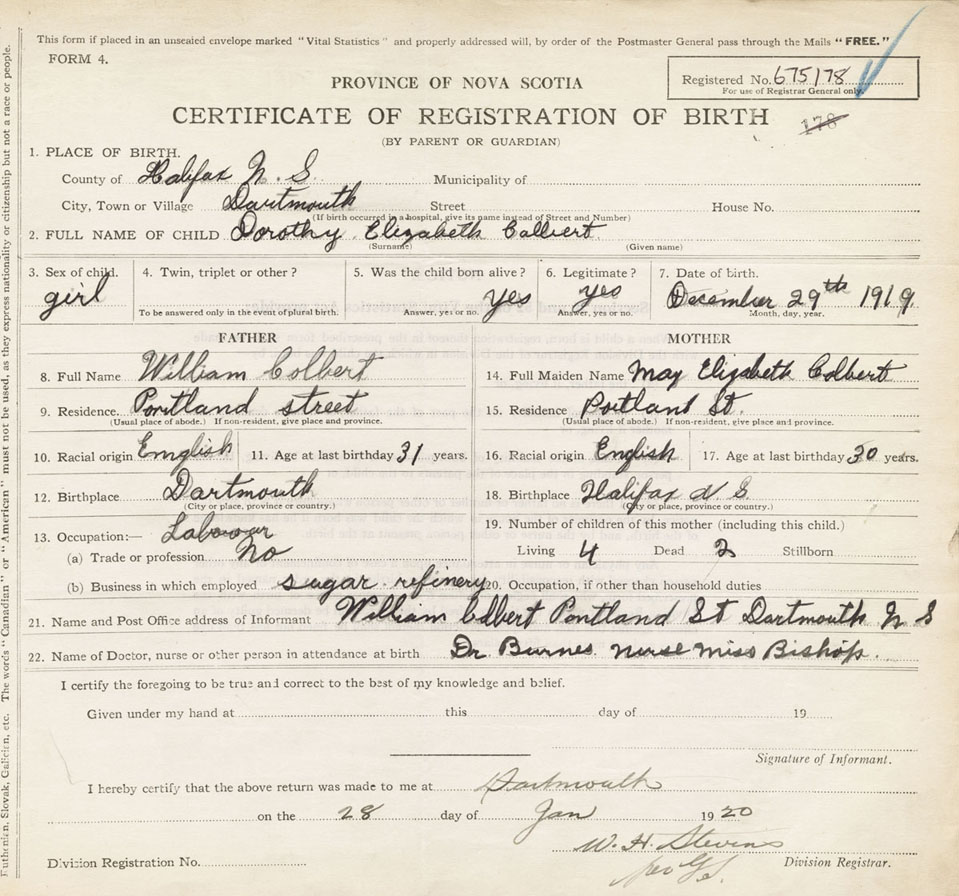 This form if placed in an unsealed envelope marked "Vital Statistics" and properly addressed will, by order of the Postmaster General pass through the Mails "FREE."
FORM 4.
Registered No. 675178
For use of Registrar General only.
PROVINCE OF NOVA SCOTIA
CERTIFICATE OF REGISTRATION OF BIRTH
178
(BY PARENT OR GUARDIAN)
1. PLACE OF BIRTH.
County of Halifax N. S. Municipality of
City, Town or Village Dartmouth Street House No.
(If birth occurred in a hospital, give its name instead of Street and Number)
2. FULL NAME OF CHILD Dorothy Elizabeth Colbert
(Surname) (Given name)
3. Sex of child. 4. Twin, triplet or other? 5. Was the child born alive? 6. Legitimate? 7. Date of birth.
girl yes yes December 29th 1919.
To be answered only in the event of plural birth. Answer, yes or no. Answer, yes or no. Month, day, year.
FATHER MOTHER
8. Full Name William Colbert 14. Full Maiden Name May Elizabeth Colbert
9. Residence. Portland street 15. Residence Portland St.
(Usual place of abode.) If non-resident, give place and province. (Usual place of abode.) If non-resident, give place and province.
10. Racial origin English 11. Age at last birthday 31 years. 16. Racial origin English 17. Age at last birthday 30 years.
12. Birthplace Dartmouth 18. Birthplace Halifax N S
(City or place, province or country.) (City or place, province or country.)
13. Occupation:— Labouer 19. Number of children of this mother (including this child.)
(a) Trade or profession No Living 4 Dead 2 Stillborn
(b) Business in which employed sugar refinery 20. Occupation, if other than household duties
21. Name and Post Office address of Informant William Colbert Portland St Dartmouth N S
22. Name of Doctor, nurse or other person in attendance at birth Dr Burnes nurse Miss Bishop.
I certify the foregoing to be true and correct to the best of my knowledge and belief.
Given under my hand at this day of 19
Signature of Informant.
I hereby certify that the above return was made to me at Dartmouth
on the 28 day of Jan 1920
W. H. Stevens
Division Registration No. Division Registrar.
Ruthenian, Slovak, Galician, etc. The words "Canadian" or "American" must not be used, as they express nationality or citizenship but not a race or people.